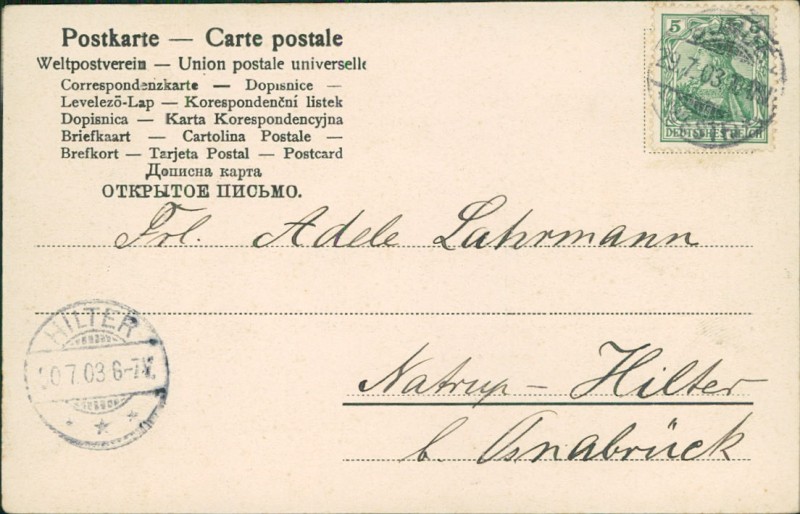 Postkarte — Carte postale
Weltpostverein — Union postale universelle
Correspondenzkarte — Dopisnice —
Levelezõ-Lap — Korespondenční listek
Dopisnica — Karta Korespondencyjna
Briefkaart — Cartolina Postale —
Brefkort — Tarjeta Postal — Postcard
Дописна карта
ОТКРЫТОЕ ПИСЬМО.
5
29.7.03
DEUTSCHES REICH
Frl. Adele Lahrmann
HILTER
7.03 6-7V.
Natrup-Hilter
b. Osnabrück